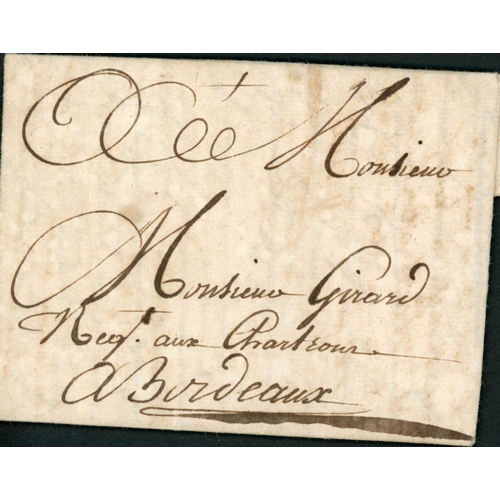 A Monsieur
Monsieur Girard
Negt. aux Chartrons
A Bordeaux